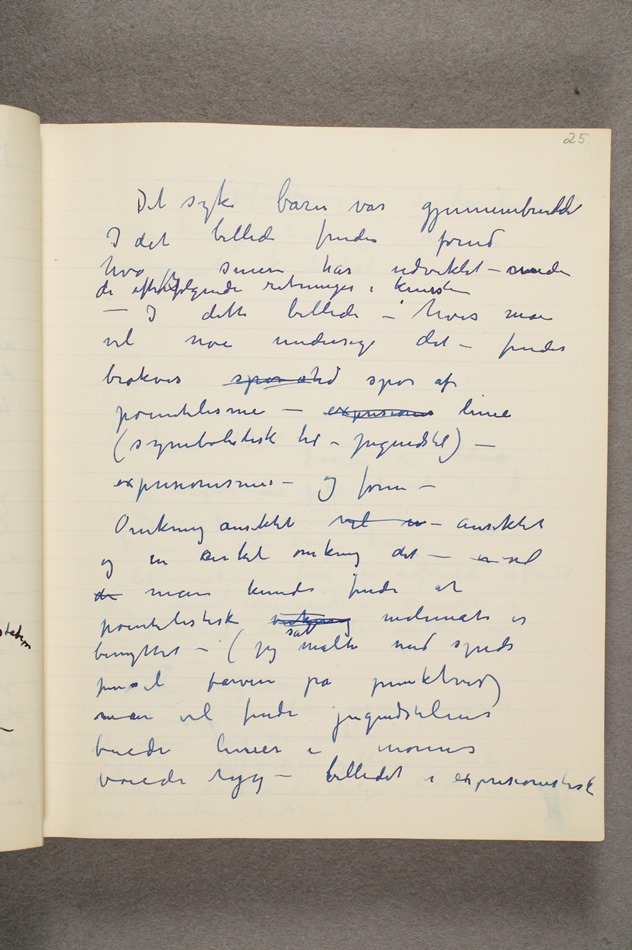 25
Det syke barn var gjennembrudd
I det billede findes forud
hva jeg siden har udviklet –
de efterfølgende retninger i kunsten
– I dette billede – hvis man
vil nøie undersøge det – findes
spor af
pointelisme – linie
(symbolistisk til – jugendstil) –
expresionisme – og form –
Omkring ansiktet – ansiktet
og en cirkel omkring det –
man kunde finde at
pointelistisk er
benyttet – (jeg satte malte med spids
pensel farven på punktvis)
man vil finde jugendstilens
buede linier i
bøiede ryg – billedet i expresionistisk